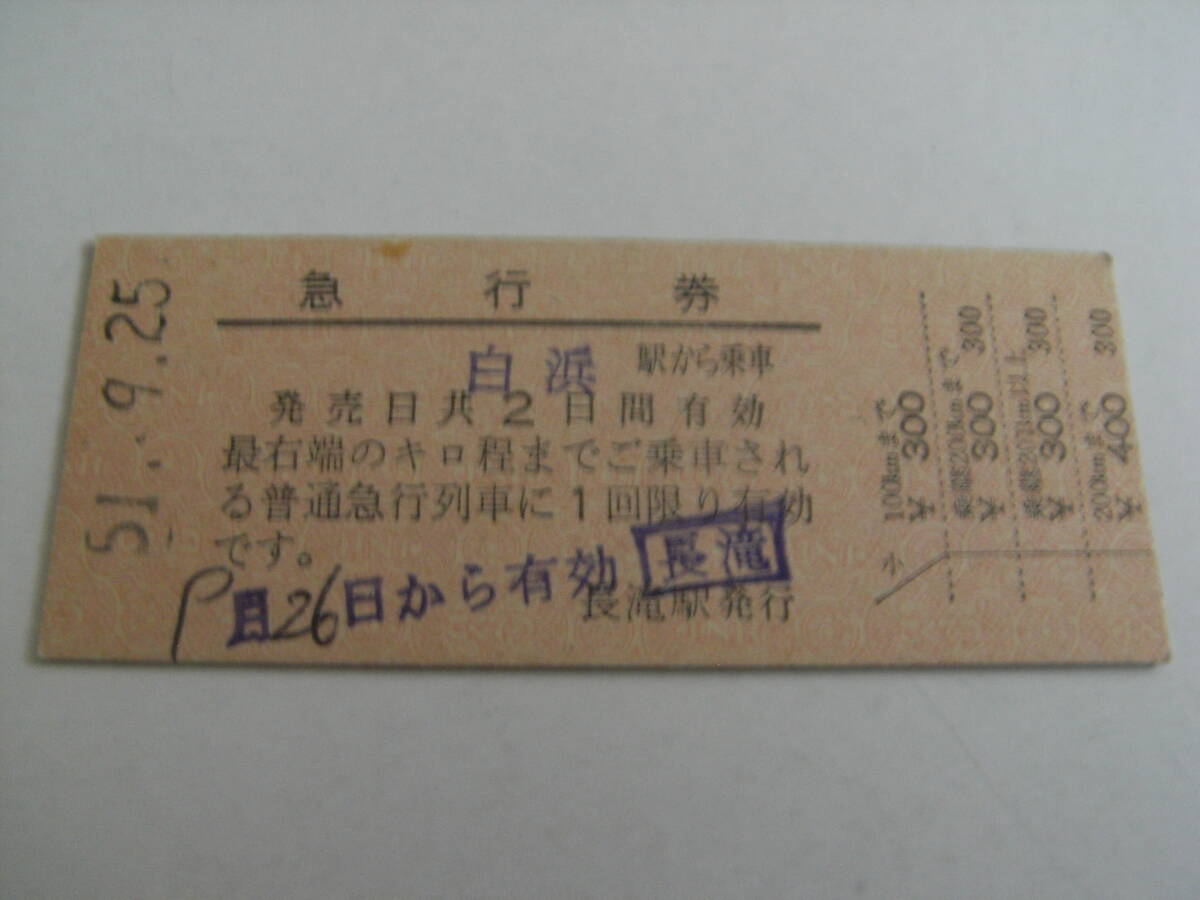 急行券
51.-9.25
白浜 駅から乗車
発売日共2日間有効
最右端のキロ程までご乗車され
る普通急行列車に1回限り有効
です。
月26日から有効 長滝
長滝駅発行
100kmまで
¥300
乗継200kmまで
¥300 300
乗継201km以上
¥300 300
200kmまで
¥400 300
小